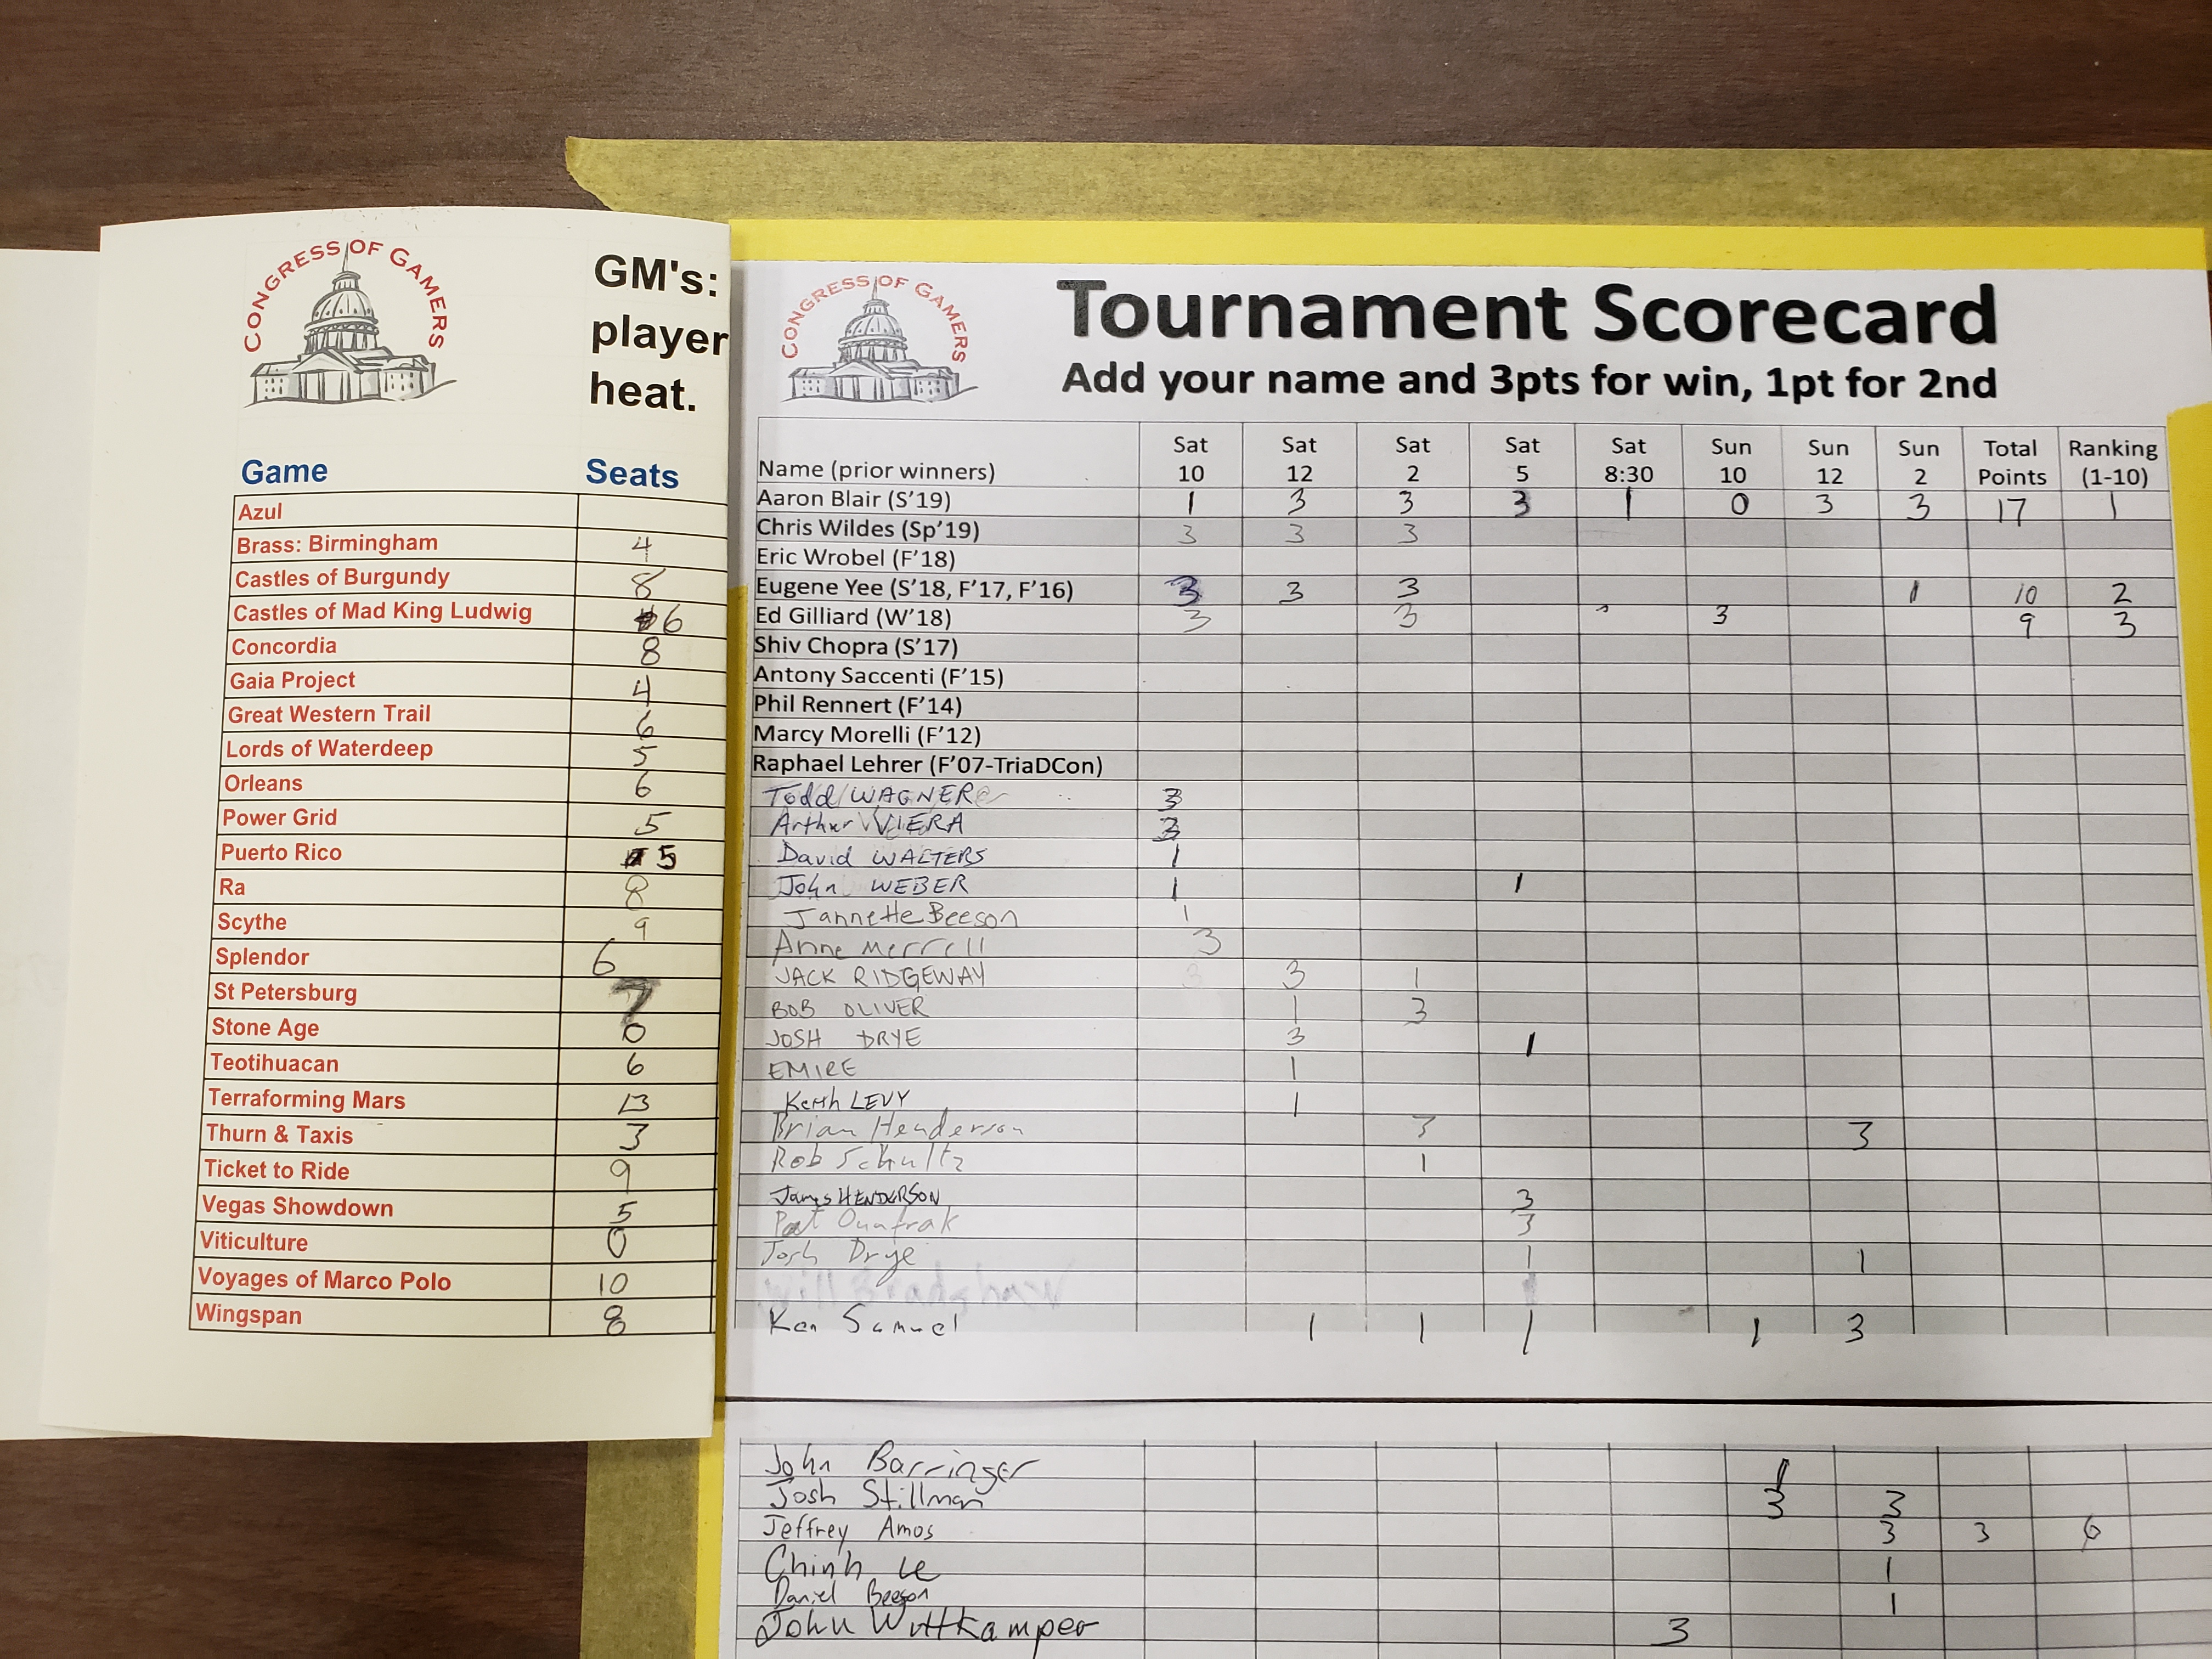 CONGRESS OF GAMERS
GM's:
player
heat.
Game Seats
Azul
Brass: Birmingham 4
Castles of Burgundy 8
Castles of Mad King Ludwig 6
Concordia 8
Gaia Project 4
Great Western Trail 6
Lords of Waterdeep 5
Orleans 6
Power Grid 5
Puerto Rico 5
Ra 8
Scythe 9
Splendor 6
St Petersburg 7
Stone Age 0
Teotihuacan 6
Terraforming Mars 13
Thurn & Taxis 3
Ticket to Ride 9
Vegas Showdown 5
Viticulture 0
Voyages of Marco Polo 10
Wingspan 8
CONGRESS OF GAMERS
Tournament Scorecard
Add your name and 3pts for win, 1pt for 2nd
Name (prior winners) Sat 10 Sat 12 Sat 2 Sat 5 Sat 8:30 Sun 10 Sun 12 Sun 2 Total Points Ranking (1-10)
Aaron Blair (S'19) 1 3 3 3 1 0 3 3 17 1
Chris Wildes (Sp'19) 3 3 3
Eric Wrobel (F'18)
Eugene Yee (S'18, F'17, F'16) 3 3 3 1 10 2
Ed Gilliard (W'18) 3 3 3 9 3
Shiv Chopra (S'17)
Antony Saccenti (F'15)
Phil Rennert (F'14)
Marcy Morelli (F'12)
Raphael Lehrer (F'07-TriaDCon)
Todd WAGNER 3
Arthur VIERA 3
David WALTERS 1
John WEBER 1 1
Jannette Beeson 1
Anne Merrell 3
JACK RIDGEWAY 3 1
BOB OLIVER 1 3
JOSH DRYE 3 1
EMIRE 1
Keith LEVY 1
Brian Henderson 3 3
Rob Schultz 1
James HENDERSON 3
Pat 3
Josh Drye 1 1
Ken Samuel 1 1 1 1 3
John Barringer 1
Josh Stillman 3 3
Jeffrey Amos 3 3 6
Chinh Le 1
Daniel Beeson 1
John Wuttkamper 3